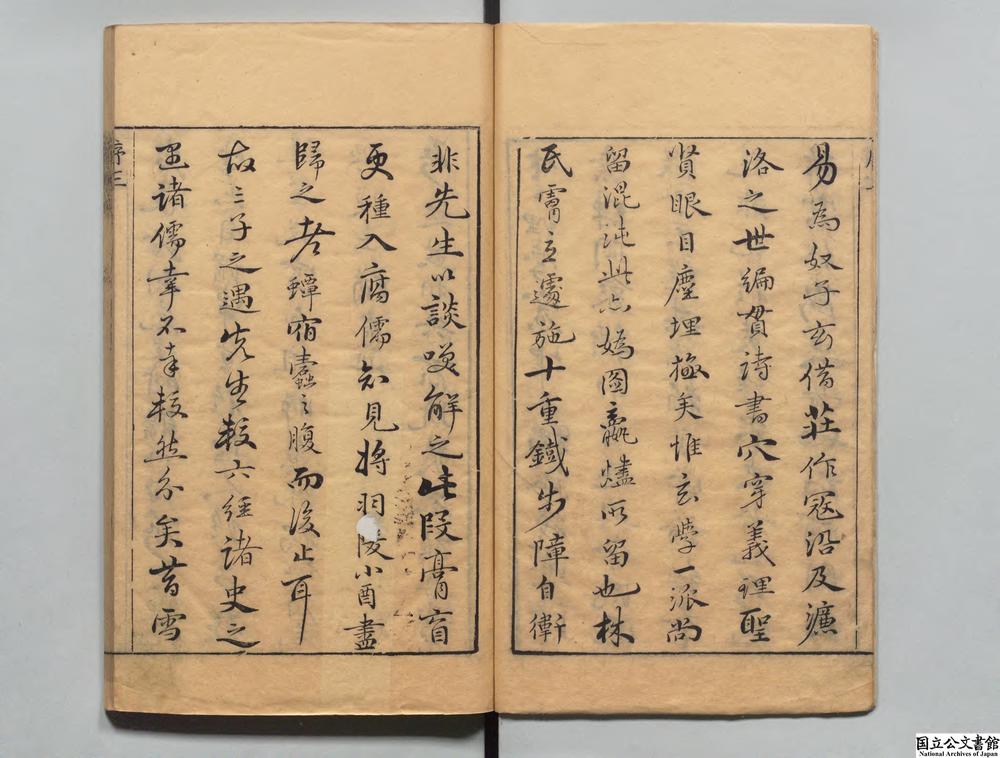 易為奴子玄借莊作冦沿及濂
洛之世編貫詩書穴穿義理聖
賢眼目塵埋極矣惟玄學一派尚
留混沌此亦媯圖嬴燼所留也林
氏膚立遽施十重鐵步障自衛
非先生以談咲解之此段膏盲
更種入腐儒知見將羽陵小酉盡
歸之老蟫宿蠹之腹而後止耳
故三子之遇先生較六經諸史之
遇諸儒幸不幸較然分矣昔雪
序三
国立公文書館
National Archives of Japan